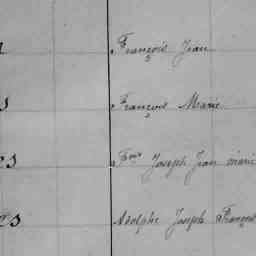 François Jean
François Marie
Fois Joseph Jean marie
Adolphe Joseph François